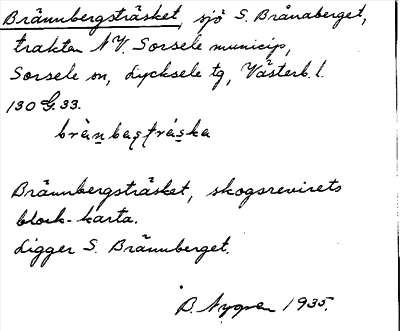 Brännbergsträsket, sjö S. Brånaberget,
trakten NV. Sorsele municip,
Sorsele sn, Lycksele tg, Västerb. l.
130 G. 33.
Brännbergsträsket, skogsrevirets
block-karta.
Ligger S. Brännberget.
B. Nygren 1935.